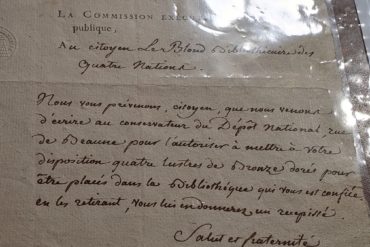 La Commission Execu
publique,
Au citoyen Le Blond Bibliothécaire des
Quatre Nations.
Nous vous prévenons, citoyen, que nous venons
d'écrire au conservateur du Dépôt National, rue
de Beaune pour l'autoriser à mettre à votre
disposition quatre lustres de Bronze dorés pour
être placés dans la Bibliothéque qui vous est confiée
en les retirant, vous lui en donnerez un recepissé.
Salut et fraternité